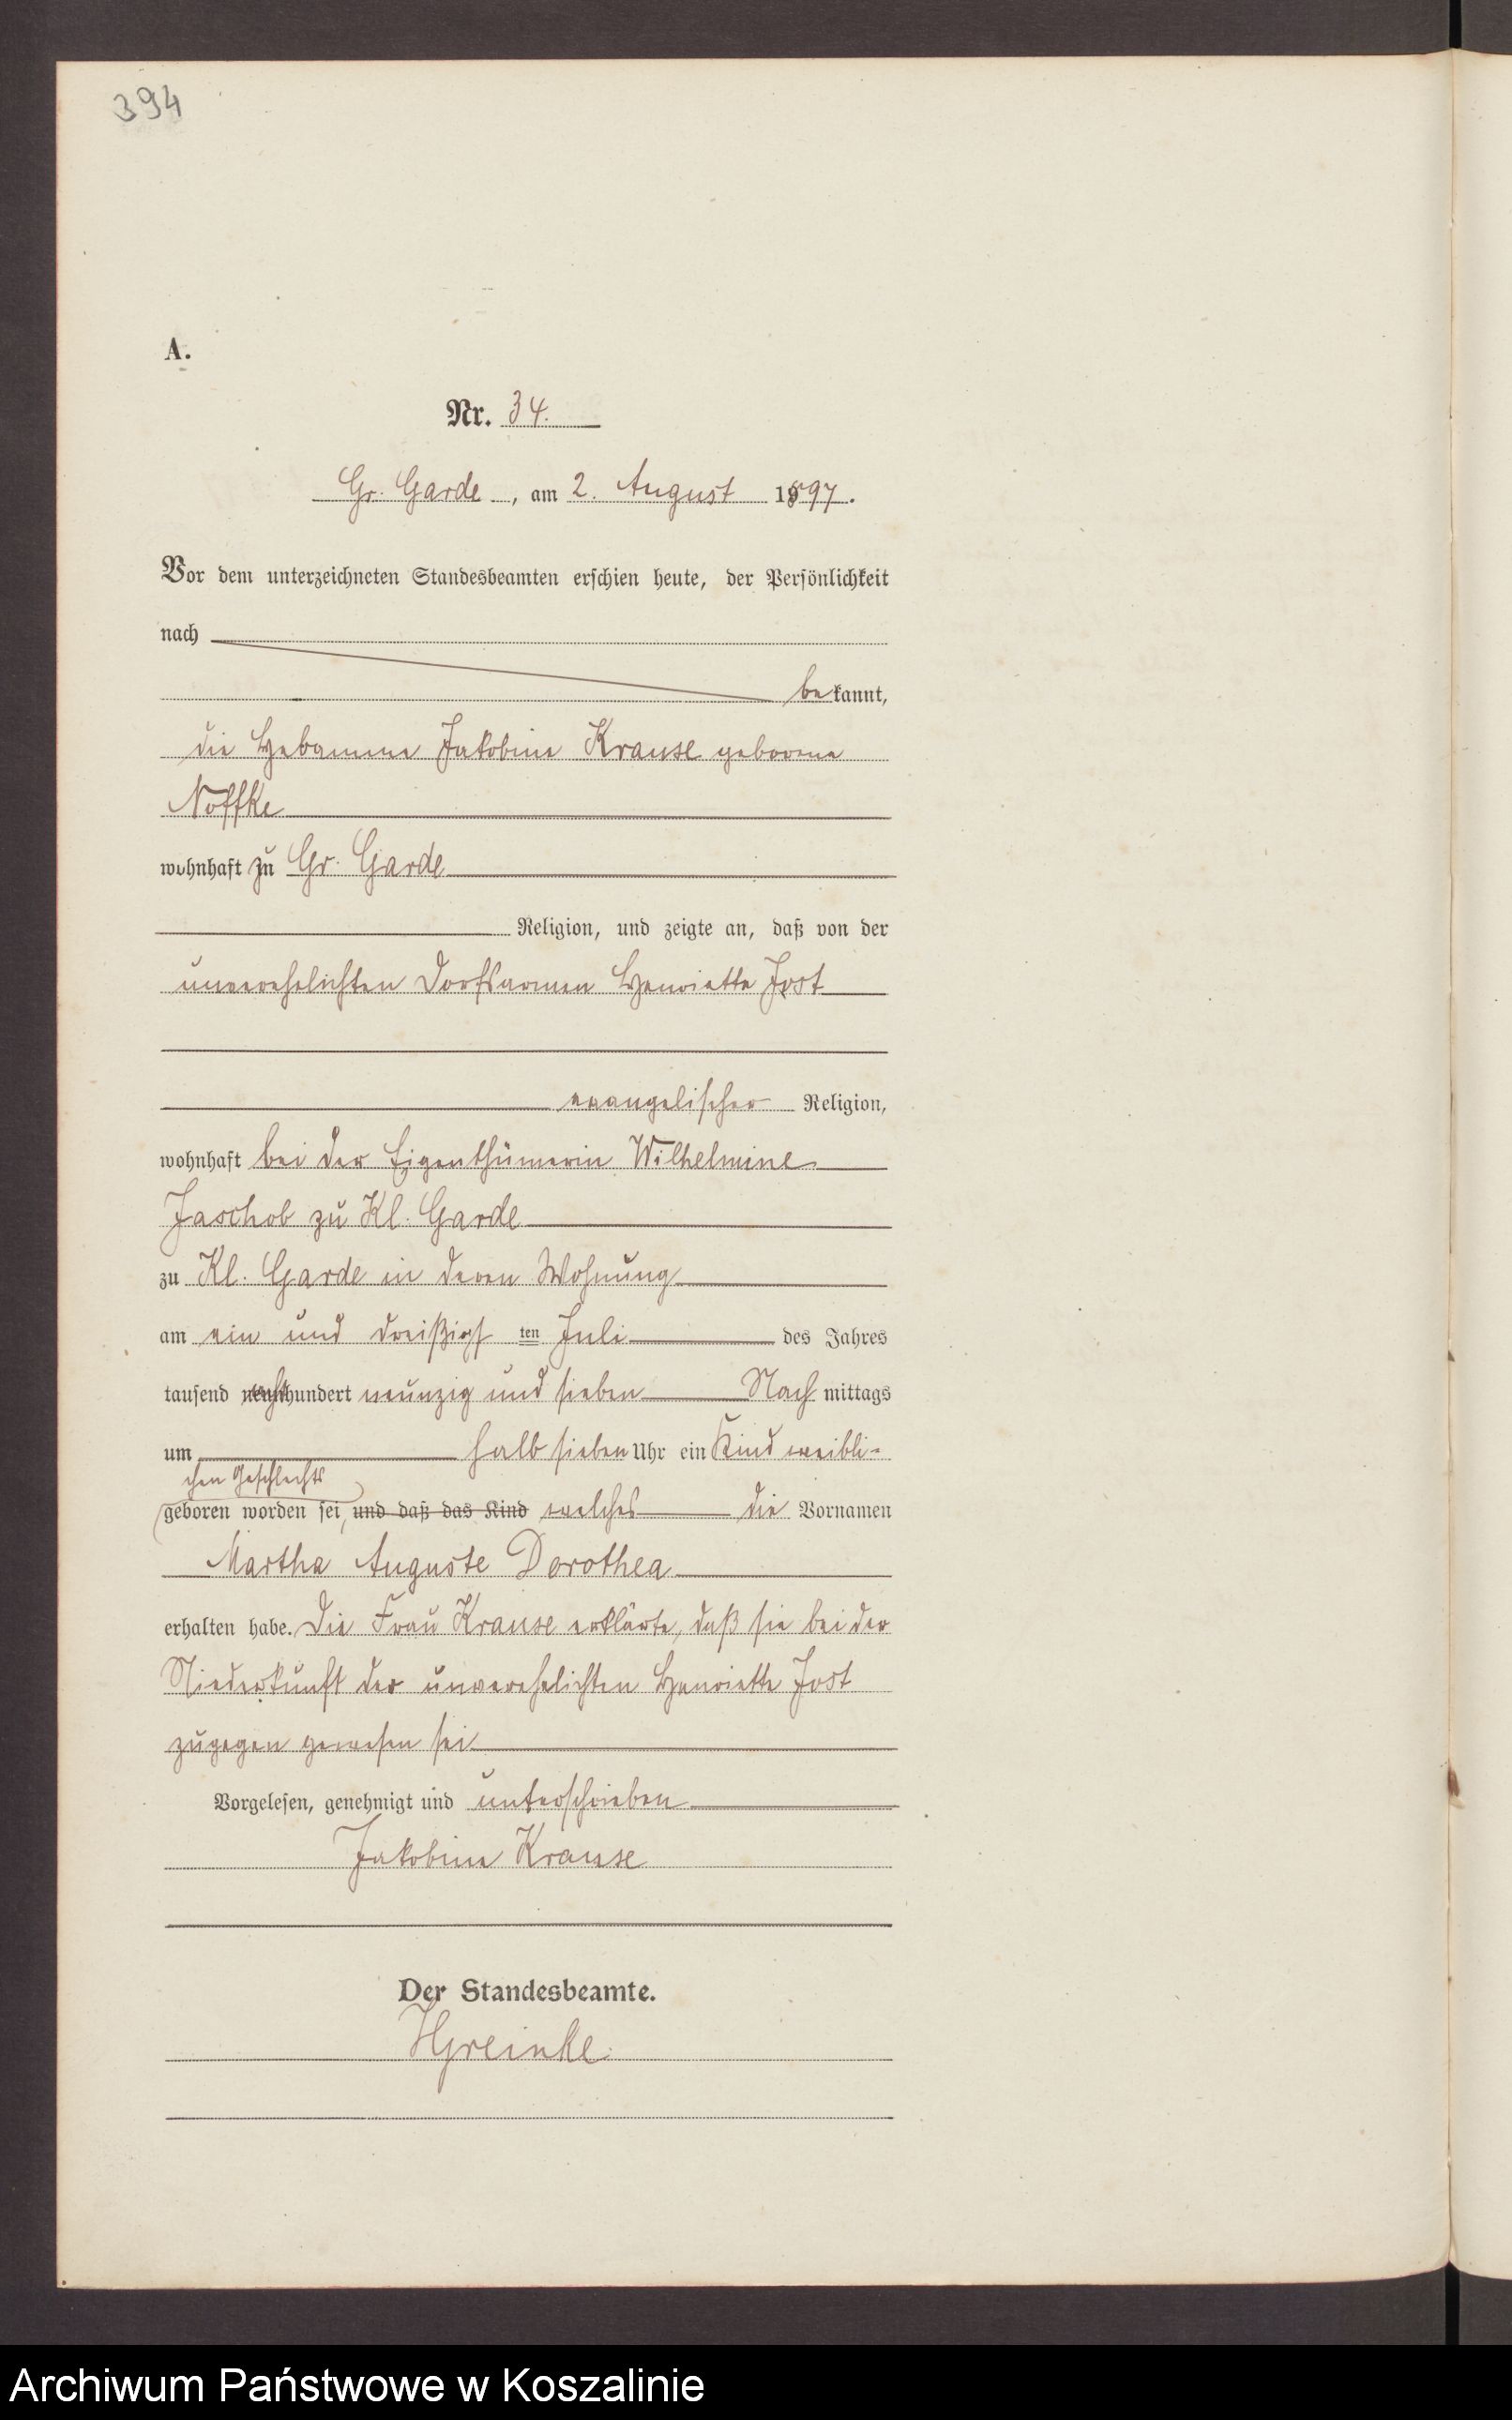 394
A.
Nr. 34.
Gr. Garde, am 2. August 1897.
Vor dem unterzeichneten Standesbeamten erschien heute, der Persönlichkeit
nach
bekannt,
die Hebamme Jakobine Krause geborene
Noffke
wohnhaft zu Gr. Garde
Religion, und zeigte an, daß von der
unverehelichten Dorfsarmen Henriette Jost
evangelischer Religion,
wohnhaft bei der Eigenthümerin Wilhelmine
Jaschob zu Kl. Garde
zu Kl. Garde in deren Wohnung
am ein und dreißigsten Juli des Jahres
tausend achthundert neunzig und sieben Nachmittags
um halb sieben Uhr ein Kind weibli-
chen Geschlechts
geboren worden sei, und daß das Kind welches die Vornamen
Martha Auguste Dorothea
erhalten habe. Die Frau Krause erklärte, daß sie bei der
Niederkunft der unverehelichten Henriette Jost
zugegen gewesen sei
Vorgelesen, genehmigt und unterschrieben
Jakobine Krause
Der Standesbeamte.
Archiwum Państwowe w Koszalinie